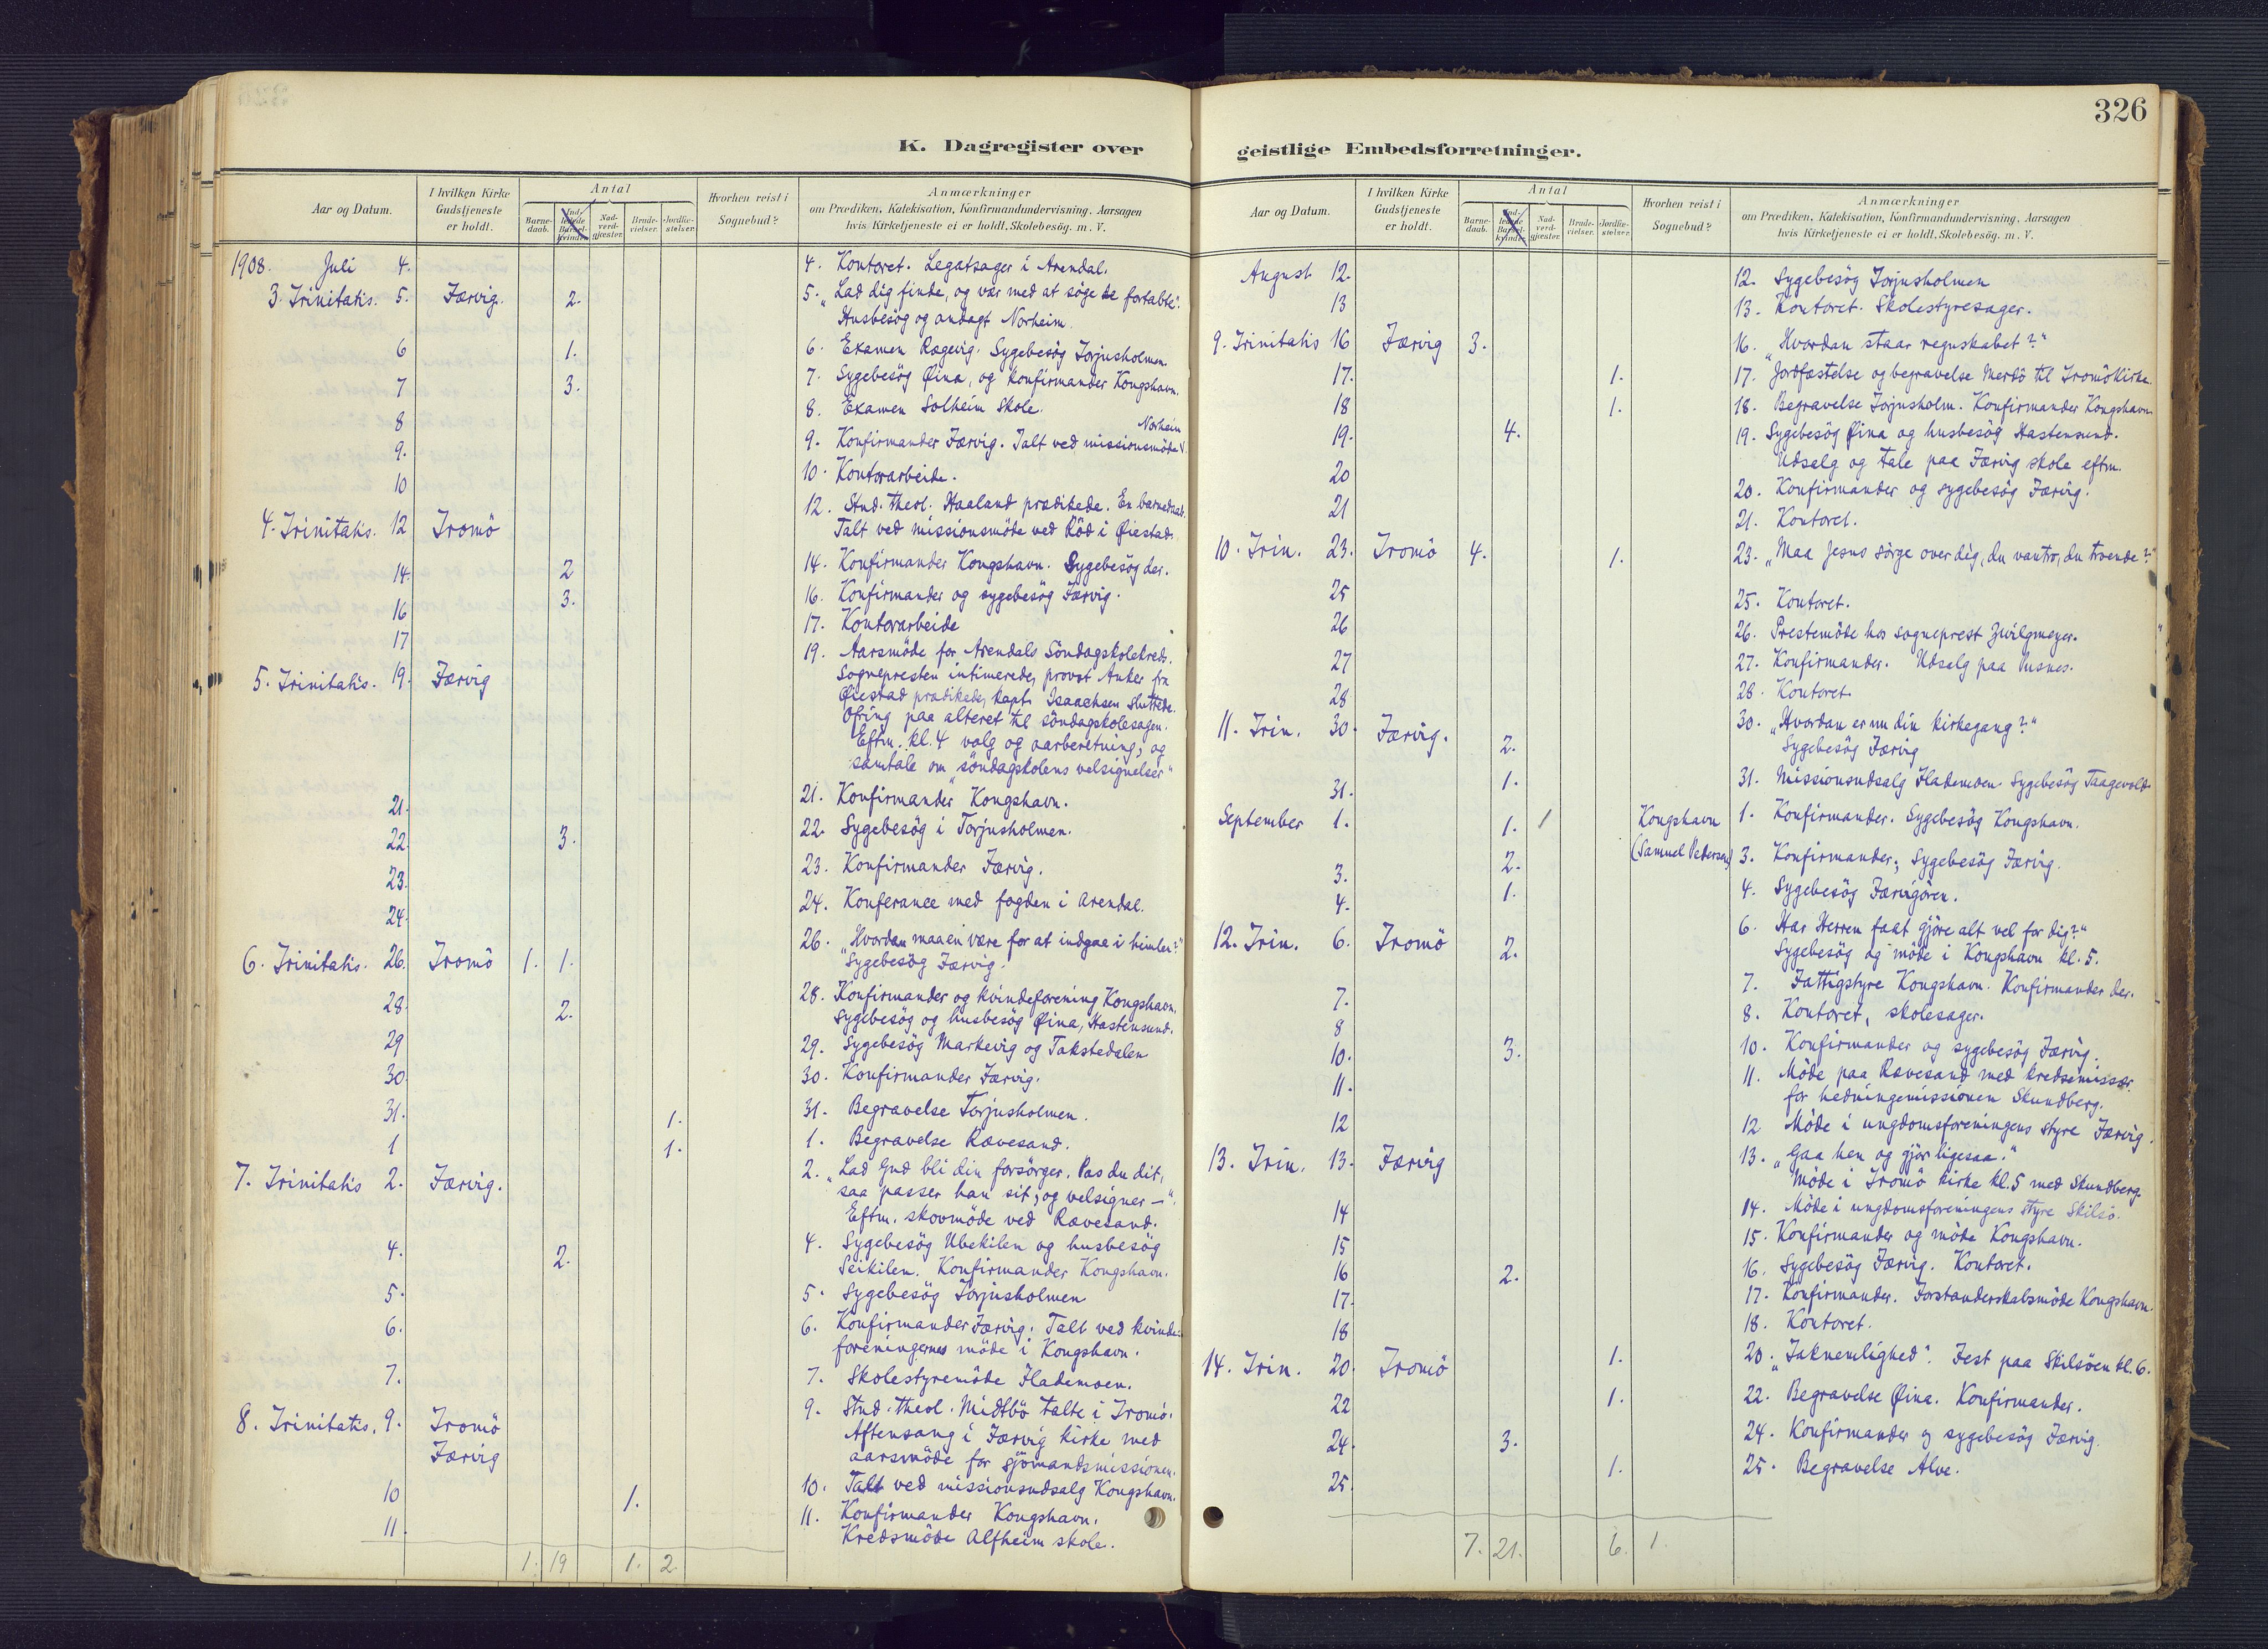 326
K. Dagregister over
geistlige Embedsforretninger.
Aar og Datum.
I hvilken Kirke Gudstjeneste er holdt.
Antal
Barne-daab.
Ind-ledede Barsel-kvinder.
Nad-verd-gjæster.
Brude-vielser.
Jordfæ-stelser.
Hvorhen reist i Sognebud?
Anmærkninger
om Prædiken, Katekisation, Konfirmandundervisning, Aarsagen
hvis Kirketjeneste ei er holdt, Skolebesøg. m. V.
1908. Juli 4. 4. Kontoret. Legatsager i Arendal.
3. Trinitatis. 5. Færvig. 2. 5. „Lad dig finde, og vær med at søge de fortabte".
Husbesøg og andagt Norheim.
6 1. 6. Examen Rægevig. Sygebesøg Torjusholmen.
7 3. 7. Sygebesøg Øina, og konfirmander Kongshavn.
8 8. Examen Solheim Skole.
9. 9. Konfirmander Færvig. Talt ved missionsmøde Norheim
10 10. Kontorarbeide.
4. Trinitatis. 12 Tromö 12. Stud. theol. Haaland prædikede. En barnedaab.
Talt ved missionsmøde ved Röd i Øiestad.
14. 2 14. Konfirmander Kongshavn. Sygebesøg der.
16 3. 16. Konfirmander og sygebesøg Færvig.
17 17. Kontorarbeide
5. Trinitatis. 19. Færvig 19. Aarsmøde for Arendals Söndagskolekreds.
Sognepresten intimerede, provst Anker fra
Øiestad prædikede, kapt. Isaachsen sluttede.
Ofring paa alteret til söndagskolesagen.
Eftm. kl. 4 valg og aarberetning, og
samtale om „söndagskolens velsignelser"
21. 21. Konfirmander Kongshavn.
22. 3. 22. Sygebesøg i Torjusholmen.
23. 23. Konfirmander Færvig.
24. 24. Konferance med fogden i Arendal.
6. Trinitatis. 26. Tromö 1. 1. 26. „Hvordan maa en være for at indgaa i himlen?"
Sygebesøg Færvig.
28. 2. 28. Konfirmander og kvindeforening Kongshavn.
Sygebesøg og husbesøg Øina, Hastensund.
29 29. Sygebesøg Markevig og Takstedalen
30. 30. Konfirmander Færvig.
31. 1. 31. Begravelse Torjusholmen.
1 1. 1. Begravelse Rævesand.
7. Trinitatis 2. Færvig. 2. „Lad Gud bli din forsörger. Pas du dit,
saa passer han sit, og velsigner —".
Eftm. skovmøde ved Rævesand.
4. 2. 4. Sygebesøg Ubekilen og husbesøg
Seikilen. Konfirmander Kongshavn.
5. 5. Sygebesøg Torjusholmen
6. 6. Konfirmander Færvig. Talt ved kvinde-
foreningernes møde i Kongshavn.
7. 7. Skolestyremøde Flademoen.
8. Trinitatis. 9. Tromö 9. Stud. theol. Midtbö talte i Tromö.
Færvig Aftensang i Færvig kirke med
aarsmøde for sjömandsmissionen.
10 1. 10. Talt ved missionsudsalg Kongshavn.
11. 11. Konfirmander Kongshavn.
Kredsmøde Alfheim skole.
1. 19 1. 2.
Aar og Datum.
I hvilken Kirke Gudstjeneste er holdt.
Antal
Barne-daab.
Ind-ledede Barsel-kvinder.
Nad-verd-gjæster.
Brude-vielser.
Jordfæ-stelser.
Hvorhen reist i Sognebud?
Anmærkninger
om Prædiken, Katekisation, Konfirmandundervisning, Aarsagen
hvis Kirketjeneste ei er holdt, Skolebesøg. m. V.
August 12. 12. Sygebesøg Torjusholmen
13 13. Kontoret. Skolestyresager.
9. Trinitatis 16 Færvig 3. 16. „Hvordan staar regnskabet?"
17. 1. 17. Jordfæstelse og begravelse Merdö til Tromö kirke.
18 1. 18. Begravelse Torjusholm. Konfirmander Kongshavn.
19. 4. 19. Sygebesøg Øina og husbesøg Hastensund.
Udsalg og tale paa Færvig skole eftm.
20 20. Konfirmander og sygebesøg Færvig.
21 21. Kontoret.
10. Trin. 23. Tromö 4. 1. 23. „Maa Jesus sörge over dig, du vantro, du troende?"
25 25. Kontoret.
26 26. Prestemøde hos sogneprest Zwilgmeyer.
27 27. Konfirmander. Udsalg paa Pusnes.
28 28. Kontoret.
11. Trin. 30. Færvig. 2. 30. „Hvordan er nu din kirkegang?"
Sygebesøg Færvig
31. 1. 31. Missionsudsalg Flademoen. Sygebesøg Taagevold.
September 1. 1. 1 Kongshavn 1. Konfirmander. Sygebesøg Kongshavn.
(Samuel Pedersen)
3. 2. 3. Konfirmander; Sygebesøg Færvig.
4. 1. 4. Sygebesøg Færvigören.
12. Trin. 6. Tromö 2. 6. Har Herren faat gjöre alt vel for dig?"
Sygebesøg og møde i Kongshavn kl. 5.
7. 7. Fattigstyre Kongshavn. Konfirmander der.
8 8. Kontoret, skolesager.
10. 3. 10. Konfirmander og sygebesøg Færvig.
11. 11. Møde paa Rævesand med kredsemissær
for hedningemissionen Skundberg.
12 12 Møde i ungdomsforeningens styre Færvig.
13. Trin. 13. Færvig 13. „Gaa hen og gjör ligesaa."
Møde i Tromö kirke kl. 5 med Skundberg.
14 14. Møde i ungdomsforeningens styre Skilsö.
15 15. Konfirmander og møde Kongshavn.
16 2. 16. Sygebesøg Færvig. Kontoret.
17. 17. Konfirmander. Forstanderskabsmøde Kongshavn.
18 18. Kontoret.
14. Trin. 20. Tromö 1. 20. „Taknemlighed". Fest paa Skilsöen kl. 6.
22 1. 22. Begravelse Øina. Konfirmander.
24. 3. 24. Konfirmander og sygebesøg Færvig.
25. 1. 25. Begravelse Alve.
7. 21. 6. 1.